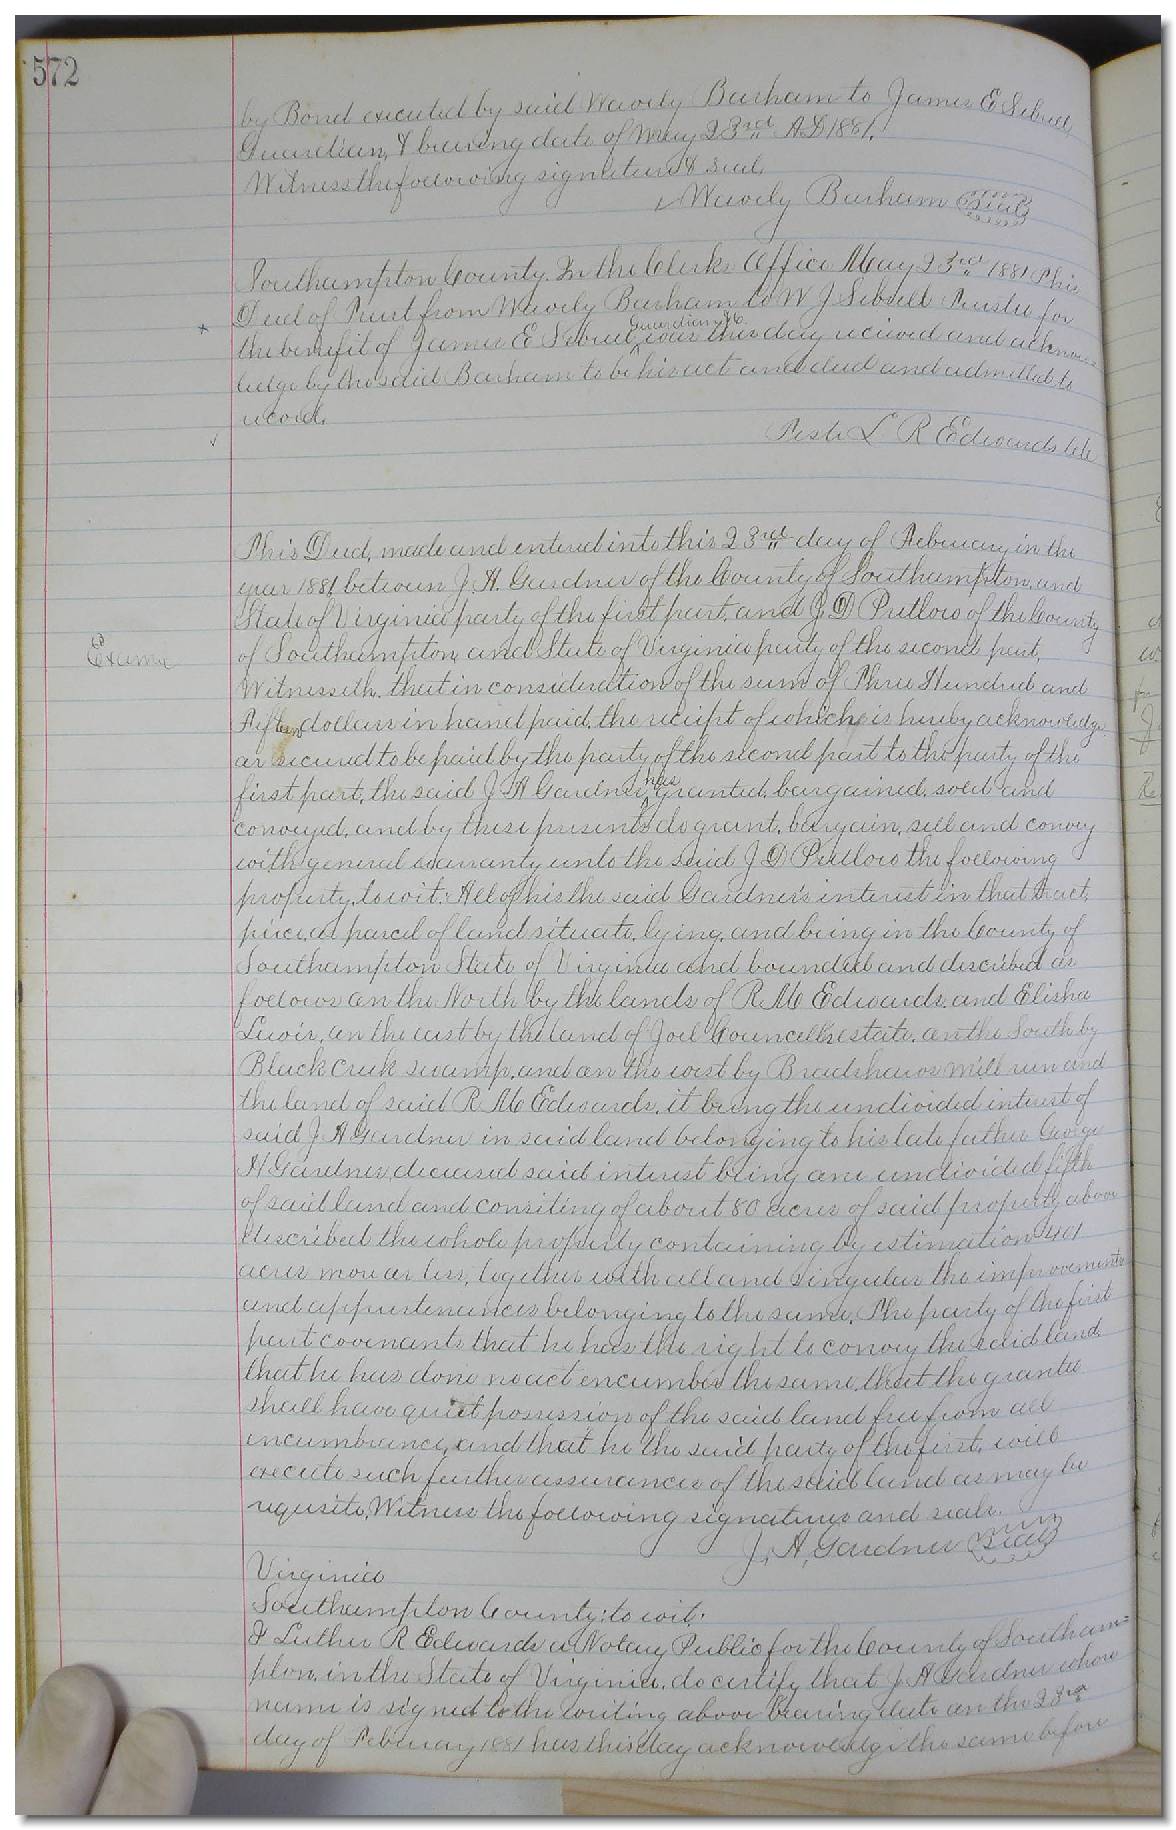 572
by Bond executed by said Waverly Barham to James E Sebrell
Guardian, & bearing date of May 23rd AD 1881.
Witness the following signature & seal,
Waverly Barham Seal
Southampton County. In the Clerks Office May 23rd 1881 This
Deed of Trust from Waverly Barham to W J Sebrell Trustee for
the benefit of James E Sebrell Guardian &c. was this day received and acknow=
ledge by the said Barham to be his act and deed and admitted to
record.
Teste L R Edwards Clk
Examd
This Deed, made and entered into this 23rd day of Febuary in the
year 1881 between J. A. Gardner of the County of Southampton, and
State of Virginia party of the first part, and J. D Pretlow of the County
of Southampton and State of Virginia party of the second part,
Witnesseth, that in consideration of the sum of Three Hundred and
Fifteen dollars in hand paid, the receipt of which is hereby acknowledge
or secured to be paid by the party of the second part to the party of the
first part, the said J A Gardner, has granted, bargained, sold and
conveyed, and by these presents do grant, bargain, sell and convey
with general warranty unto the said J D Pretlow the following
property, to wit: All of his the said Gardner's interest in that tract,
piece, or parcel of land situate, lying, and being in the County of
Southampton State of Virginia and bounded and described as
follows on the North by the lands of R. M Edwards, and Elisha
Lewis, on the east by the land of Joel Councell's estate, on the South by
Black Creek swamp, and on the west by Bradshaws Mill run and
the land of said R M Edwards, it being the undivided interest of
said J A Gardner in said land belonging to his late father George
H Gardner, deceased said interest being one undivided fifth
of said land and consiting of about 80 acres of said property above
described the whole property containing by estimation 401
acres more or less, together with all and singular the improvements
and appurtenances belonging to the same, The party of the first
part covenants that he has the right to convey the said land,
that he has done no act encumber the same, that the grantee
shall have quiet possession of the said land free from all
incumbrance, and that he the said party of the first, will
execute such further assurances of the said land as may be
requisite, Witness the following signatures and seals.
J, A, Gardner Seal
Virginia
Southampton County: to wit:
I Luther R Edwards a Notary Public for the County of Southam=
pton, in the State of Virginia, do certify that J A Gardner whose
name is signed to the writing above bearing date on the 23rd
day of Febuary 1881 has this day acknowledge the same before